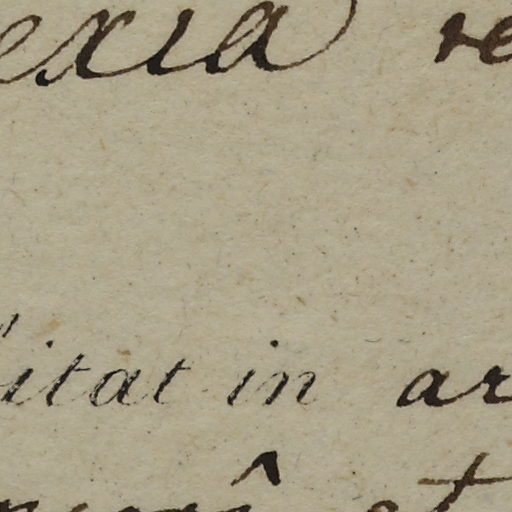 exia re
itat in ar
et